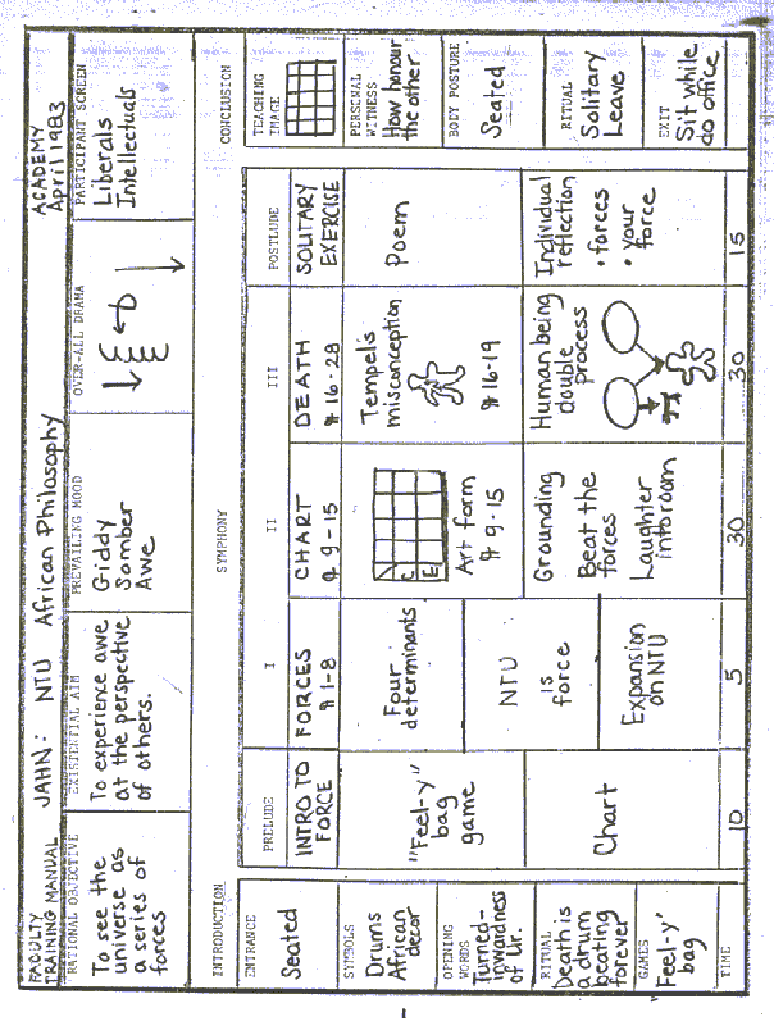 FACULTY
TRAINING MANUAL
JAHN: NTU African Philosophy
ACADEMY
April 1983
RATIONAL OBJECTIVE
To see the
universe as
a series of
forces
EXISTENTIAL AIM
To experience awe
at the perspective
of others.
PREVAILING MOOD
Giddy
Somber
Awe
OVER-ALL DRAMA
PARTICIPANT SCREEN
Liberals
Intellectuals
INTRODUCTION
SYMPHONY
CONCLUSION
ENTRANCE
Seated
SYMBOLS
Drums
African
decor
OPENING
WORDS
Turned-
inwardness
of Ur.
RITUAL
Death is
a drum
beating
forever
GAMES
"Feel-y"
bag
TIME
PRELUDE
INTRO TO
FORCE
"Feel-y"
bag
game
Chart
10
I
FORCES
¶ 1-8
Four
determinants
NTU
is
force
Expansion
on NTU
5
II
CHART
¶ 9-15
C
E
Art form
¶ 9-15
Grounding
Beat the
forces
Laughter
into room
30
III
DEATH
¶ 16-28
Tempel's
misconception
¶ 16-19
Human being
double
process
30
POSTLUDE
SOLITARY
EXERCISE
Poem
Individual
reflection
• forces
• Your
force
15
TEACHING
IMAGE
PERSONAL
WITNESS
How honour
the other
BODY POSTURE
Seated
RITUAL
Solitary
Leave
EXIT
Sit while
do office